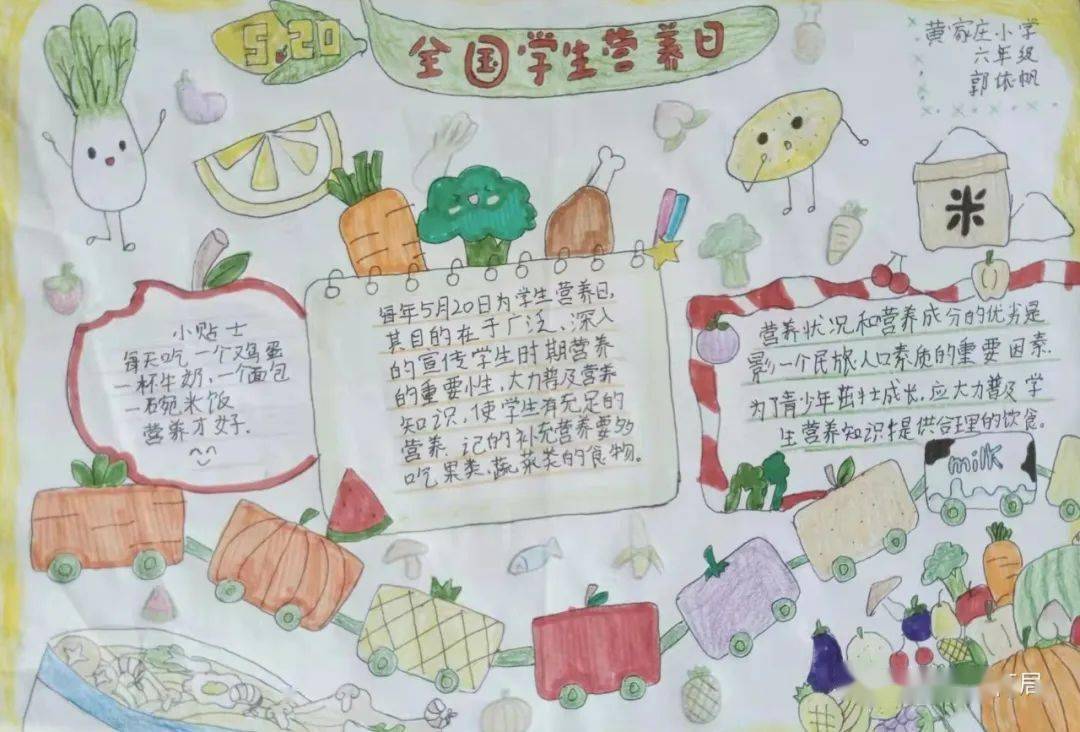 5.20
全国学生营养日
黄家庄小学
六年级
郭依帆
米
小贴士
每天吃一个鸡蛋
一杯牛奶,一个面包
一碗米饭
营养才好.
每年5月20日为学生营养日,
其目的在于广泛、深入
的宣传学生时期营养
的重要性,大力普及营养
知识,使学生有充足的
营养.记的补充营养要多
吃果类,蔬菜类的食物。
营养状况和营养成分的优劣是
影一个民族人口素质的重要因素.
为了青少年茁壮成长,应大力普及学
生营养知识提供合理的饮食。
milk
局